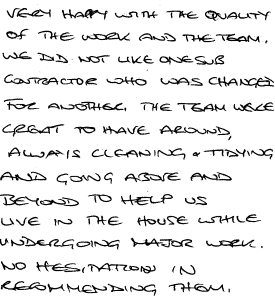 VERY HAPPY WITH THE QUALITY
OF THE WORK AND THE TEAM.
WE DID NOT LIKE ONE SUB
CONTRACTOR WHO WAS CHANGED
FOR ANOTHER. THE TEAM WERE
GREAT TO HAVE AROUND,
ALWAYS CLEANING & TIDYING
AND GOING ABOVE AND
BEYOND TO HELP US
LIVE IN THE HOUSE WHILE
UNDERGOING MAJOR WORK.
NO HESITATION IN
RECOMMENDING THEM.